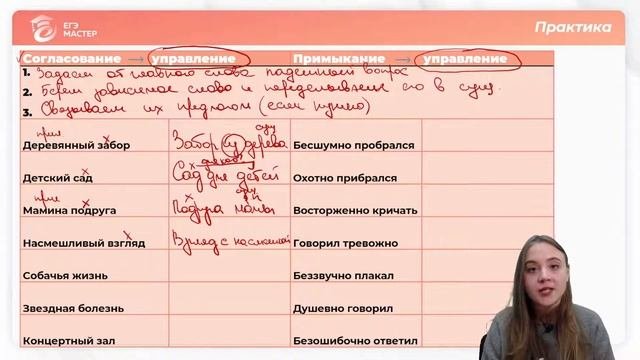 ЕГЭ
МАСТЕР
Практика
Согласование → управление Примыкание → управление
1. Задаем от главного слова падежный вопрос
2. Берем зависимое слово и переделываем его в сущ.
3. Связываем их предлогом (если нужно)
прил сущ
Деревянный забор Забор из дерева Бесшумно пробрался
Детский сад Сад для детей Охотно прибрался
прил сущ
Мамина подруга Подруга мамы Восторженно кричать
Насмешливый взгляд Взгляд с насмешкой Говорил тревожно
Собачья жизнь Беззвучно плакал
Звездная болезнь Душевно говорил
Концертный зал Безошибочно ответил